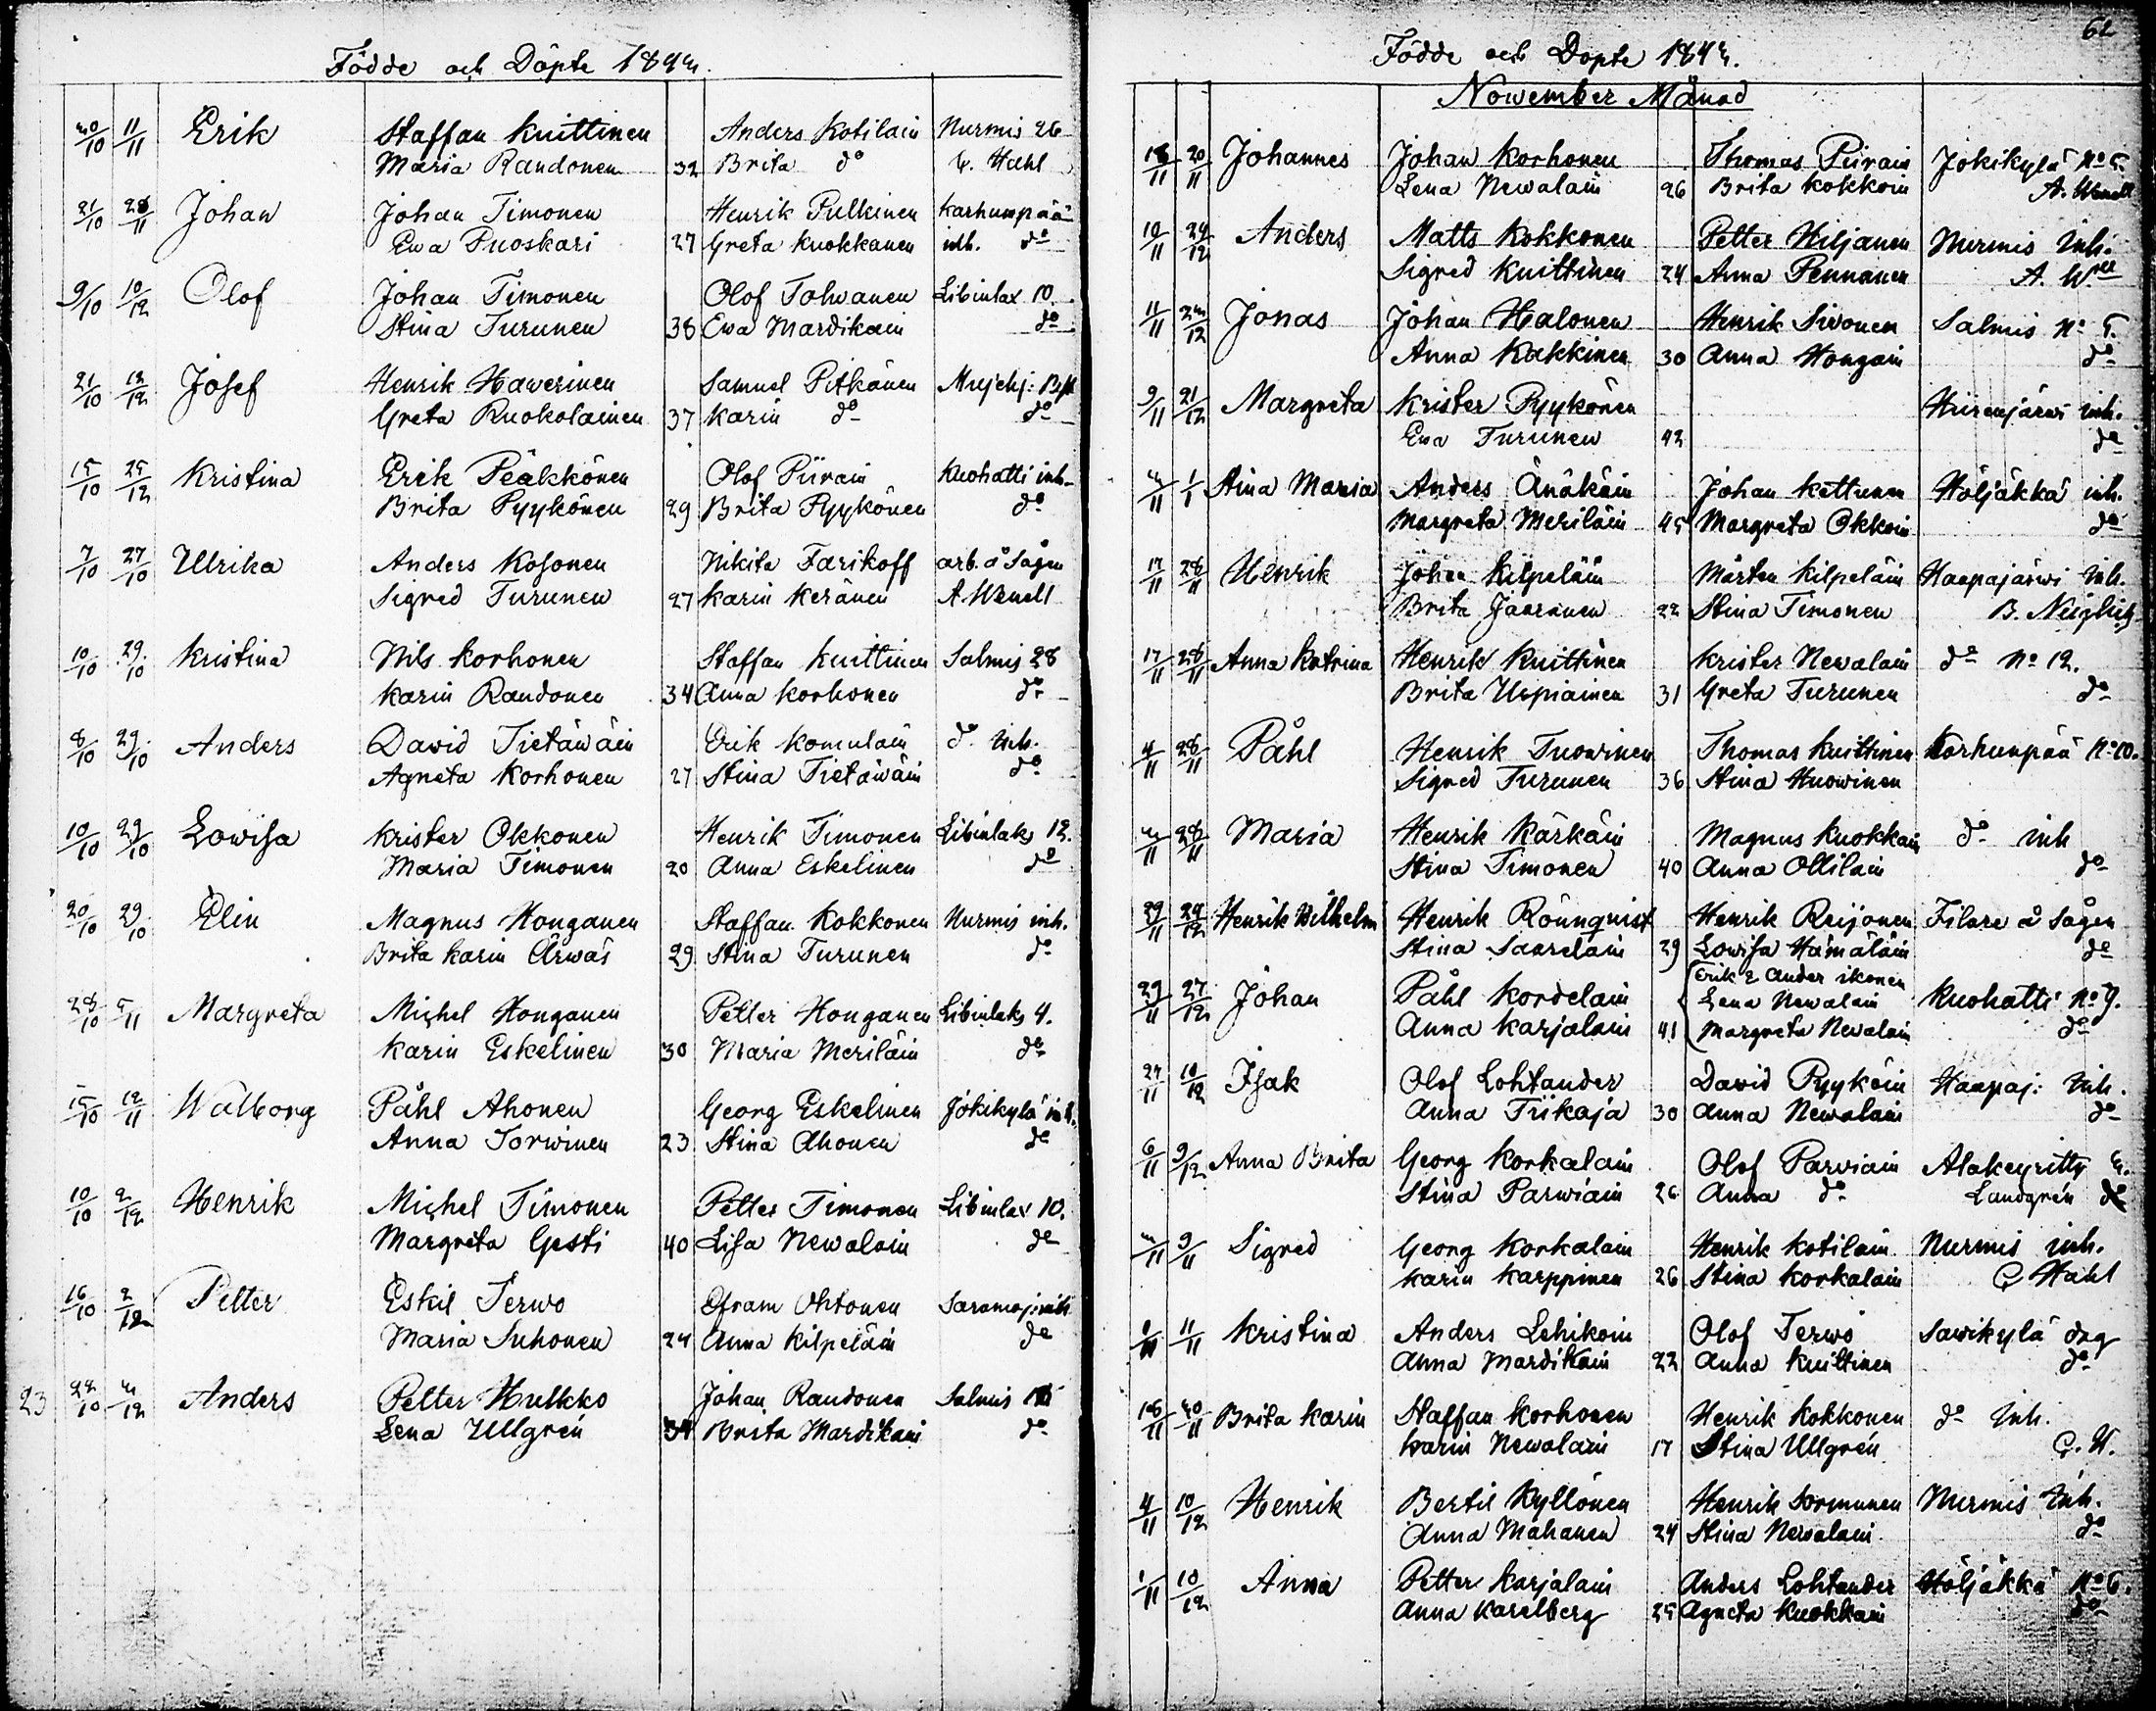 Födde och Döpte 184
30/10 11/11 Erik Staffan Knittinen Anders Kotilain Nurmis 26
Maria Randonen 32 Brita do C. Hahl
21/10 28/11 Johan Johan Timonen Henrik Pulkinen Karhunpää
Ewa Puoskari 27 Greta Kuokkanen inh. do
9/10 10/12 Olof Johan Timonen Olof Tolwanen Libinlax 10.
Stina Turunen 38 Ewa Mardikain do
21/10 12/12 Josef Henrik Hawerinen Samuel Pitkänen
Greta Ruokolainen 37 Karin do do
15/10 25/12 Kristina Erik Peäkkönen Olof Piirain Kuohatti inh.
Brita Pyykönen 29 Brita Pyykönen do
7/10 27/10 Ulrika Anders Kosonen Nikita Farikoff arb. å Sågen
Sigred Turunen 27 Karin Keränen A. Wenell
10/10 29/10 Kristina Nils Korhonen Staffan Knittinen Salmis 28
Karin Randonen 34 Anna Korhonen do
8/10 29/10 Anders David Tietäwäin Erik Komulain do inh.
Agneta Korhonen 27 Stina Tietäwäin do
10/10 29/10 Lowisa Krister Okkonen Henrik Timonen Libinlaks 12.
Maria Timonen 20 Anna Eskelinen do
20/10 29/10 Elin Magnus Honganen Staffan Kokkonen Nurmis inh.
Brita Karin Ärwäs 29 Stina Turunen do
28/10 5/11 Margreta Michel Honganen Petter Honganen Libinlaks 4.
Karin Eskelinen 30 Maria Meriläin do
15/10 12/11 Walborg Påhl Ahonen Georg Eskelinen Jokikylä inh.
Anna Torwinen 23 Stina Ahonen do
10/10 2/12 Henrik Michel Timonen Petter Timonen Libinlax 10.
Margreta Gesti 40 Lisa Newalain do
16/10 2/12 Petter Eskil Terwo Efram Ohtonen Saramoj: inh
Maria Suhonen 24 Anna Kilpeläin do
23 22/10 3/12 Anders Petter Hulkko Johan Randonen Salmis
Lena Ullgrén 34 Brita Mardikain do
62
Födde och Döpte 184
November Månad
18/11 20/11 Johannes Johan Korhonen Thomas Piirain Jokikylä No 5.
Lena Newalain 26 Brita Kokkoin A. Wenell
10/11 24/12 Anders Matts Kokkonen Petter Hiljanen Nurmis Inh.
Sigred Knittinen 24 Anna Pennanen A. Wll
11/11 23/12 Jonas Johan Halonen Henrik Sivonen Salmis No 5.
Anna Kakkinen 30 Anna Hongain do
9/11 21/12 Margreta Krister Pyykönen Hiirenjärwi inh.
Ewa Turunen 42 do
3/11 1/1 Stina Maria Anders Änäkäin Johan Kettunen Höljäkkä inh.
Margreta Meriläin 45 Margreta Okkoin do
17/11 28/11 Henrik Johan Kilpeläin Mårten Kilpeläin Haapajärwi Inh.
Brita Jaaranen 22 Stina Timonen B. Neiglick
17/11 28/11 Anna Katrina Henrik Knittinen Krister Newalain do No 12.
Brita Uspiainen 31 Greta Turunen do
4/11 28/11 Påhl Henrik Tuowinen Thomas Knittinen Karhunpää No 10.
Sigred Turunen 36 Stina Huowinen
3/11 28/11 Maria Henrik Kärkäin Magnus Kuokkain do inh
Stina Timonen 40 Anna Ollilain do
29/11 24/12 Henrik Wilhelm Henrik Rönnqvist Henrik Reijonen Filare å Sågen
Stina Saarelain 29 Lowisa Hämäläin do
Erik & Ander ikonen
29/11 27/12 Johan Påhl Kordelain Lena Newalain Kuohatti No 7.
Anna Karjalain 41 Margreta Newalain do
24/11 10/12 Isak Olof Lohtander David Pyyköin Haapaj: Inh.
Anna Triikaja 30 Anna Newalain do
6/11 9/12 Anna Brita Georg Korkalain Olof Parwiain Alakeyritty
Stina Parwiain 26 Anna do Landgrén
3/11 9/11 Sigred Georg Korkalain Henrik Kotilain Nurmis inh.
Karin Karppinen 26 Stina Korkalain C Hahl
11/11 Kristina Anders Lehikoin Olof Terwo Sawikylä dag
Anna Mardikain 22 Anna Knittinen do
18/11 30/11 Brita Karin Staffan Korhonen Henrik Kokkonen do Inh.
Karin Newalain 17 Stina Ullgrén C. H.
4/11 10/12 Henrik Bertil Kyllönen Henrik Sormunen Nurmis Inh.
Anna Mahanen 24 Stina Newalain do
1/11 10/12 Anna Petter Karjalain Anders Lohtander Höljäkkä No 6.
Anna Karelberg 25 Agneta Kuokkain do